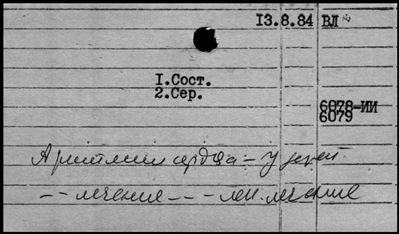 13.8.84 ВЛ
1.Сост.
2.Сер.
6078-ИИ
6079
Аритмии сердца – у детей
– – лечение – – – лечение